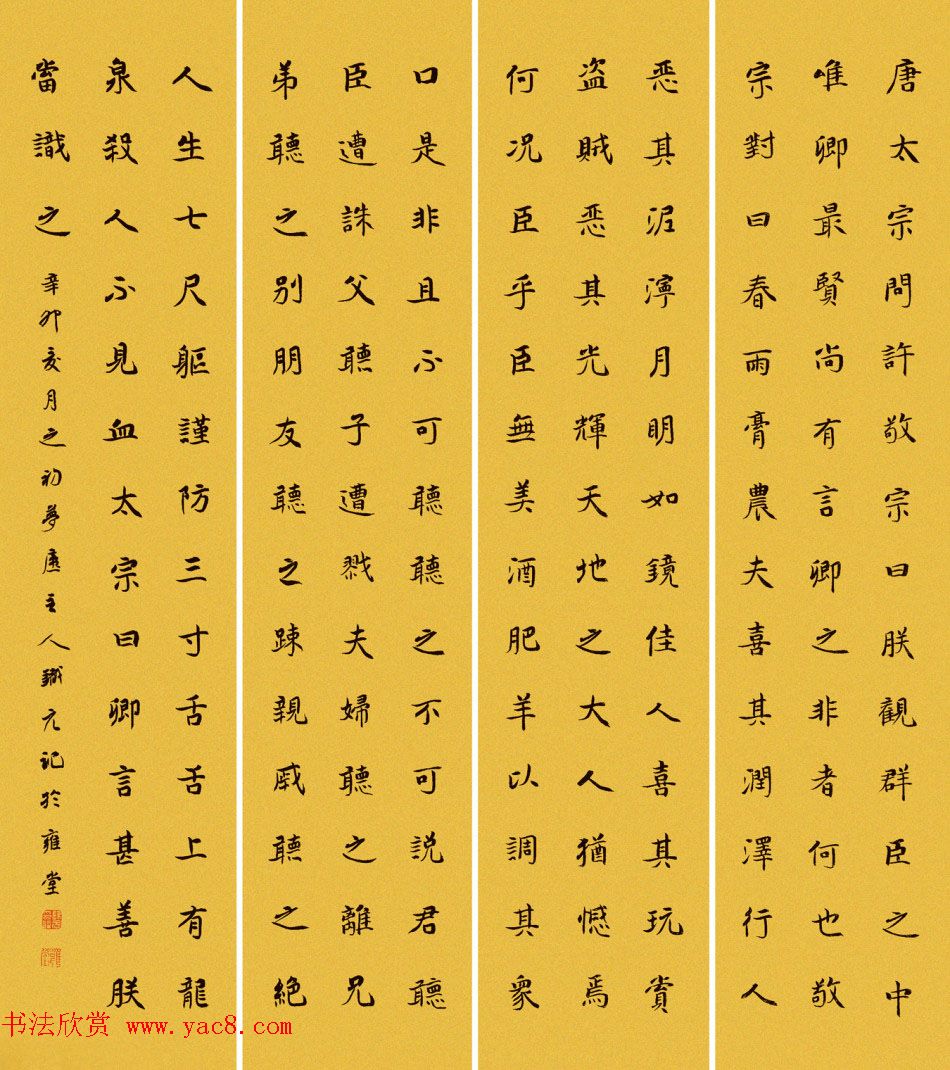 唐太宗問許敬宗曰朕觀群臣之中
唯卿最賢尚有言卿之非者何也敬
宗對曰春雨膏農夫喜其潤澤行人
惡其泥濘月明如鏡佳人喜其玩賞
盗賊惡其光輝天地之大人猶憾焉
何况臣乎臣無美酒肥羊以調其衆
口是非且不可聽聽之不可説君聽
臣遭誅父聽子遭戮夫婦聽之離兄
弟聽之別朋友聽之踈親戚聽之絶
人生七尺軀謹防三寸舌舌上有龍
泉殺人不見血太宗曰卿言甚善朕
當識之
辛卯亥月之初夢廬主人鐵元記於雍堂
书法欣赏 www.yac8.com